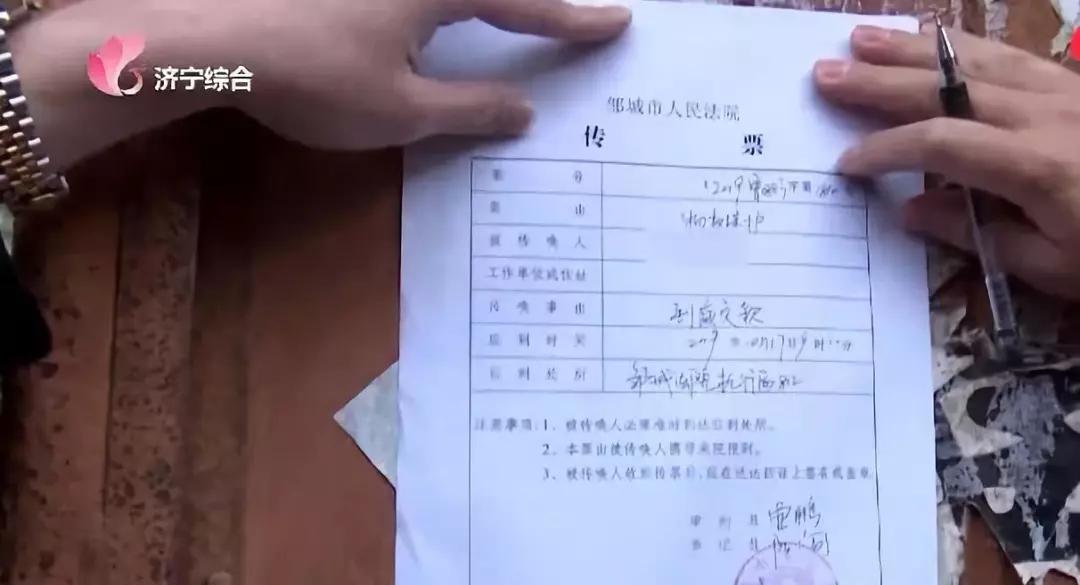 济宁综合
邹城市人民法院
传票
案 号
案 由 物权保护
被传唤人
工作单位或住址
传唤事由 到庭交款
应到时间 2019年 月17日9时 分
应到处所 邹城法院执行局
注意事项：1、被传唤人必须准时到达应到处所。
2、本票由被传唤人携带来院报到。
3、被传唤人收到传票后，应在送达回证上签名或盖章。
审判员
书记员